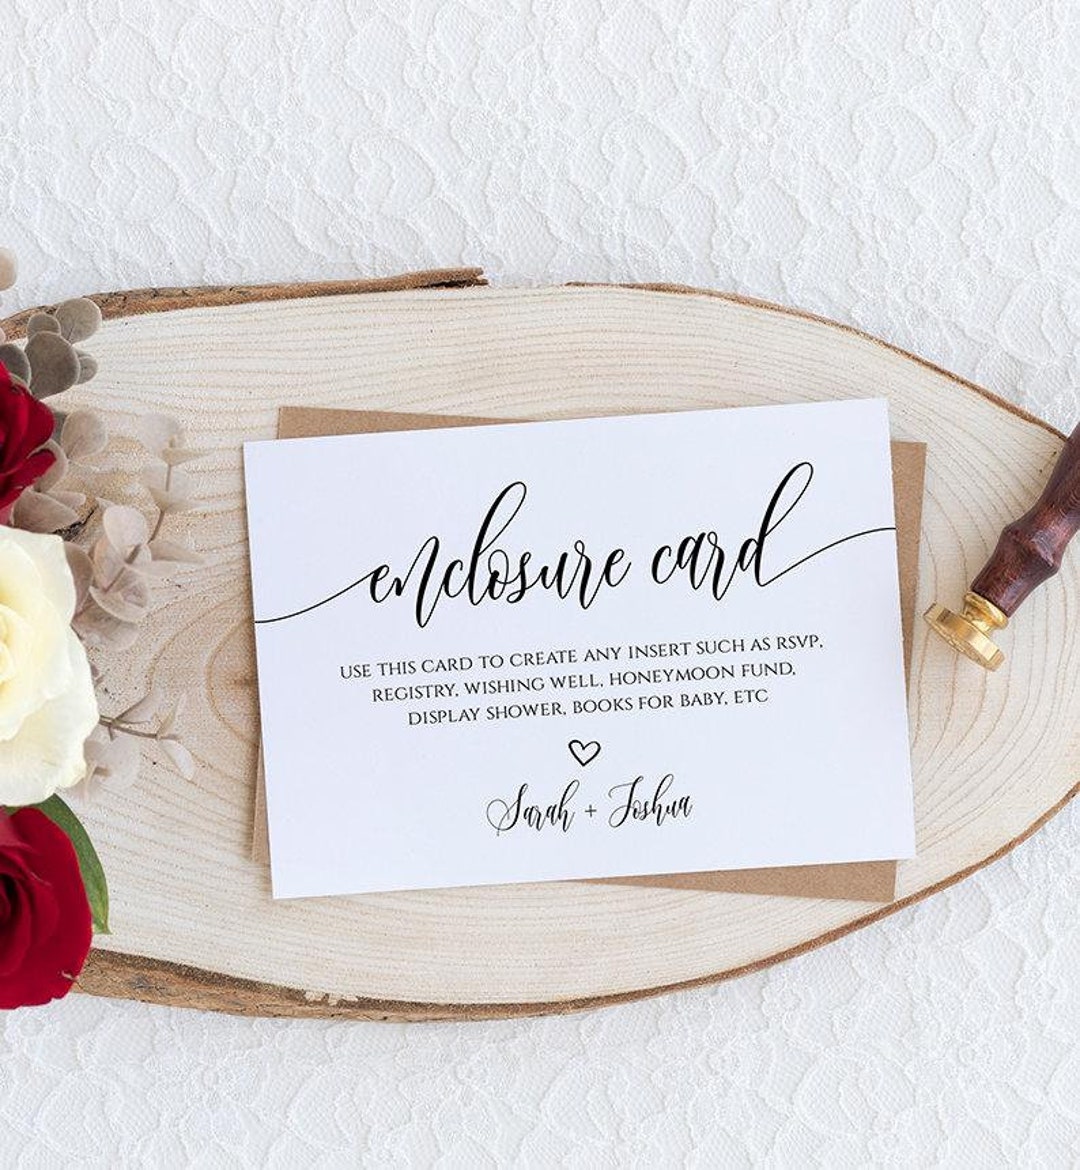 enclosure card
USE THIS CARD TO CREATE ANY INSERT SUCH AS RSVP,
REGISTRY, WISHING WELL, HONEYMOON FUND,
DISPLAY SHOWER, BOOKS FOR BABY, ETC
Sarah + Joshua